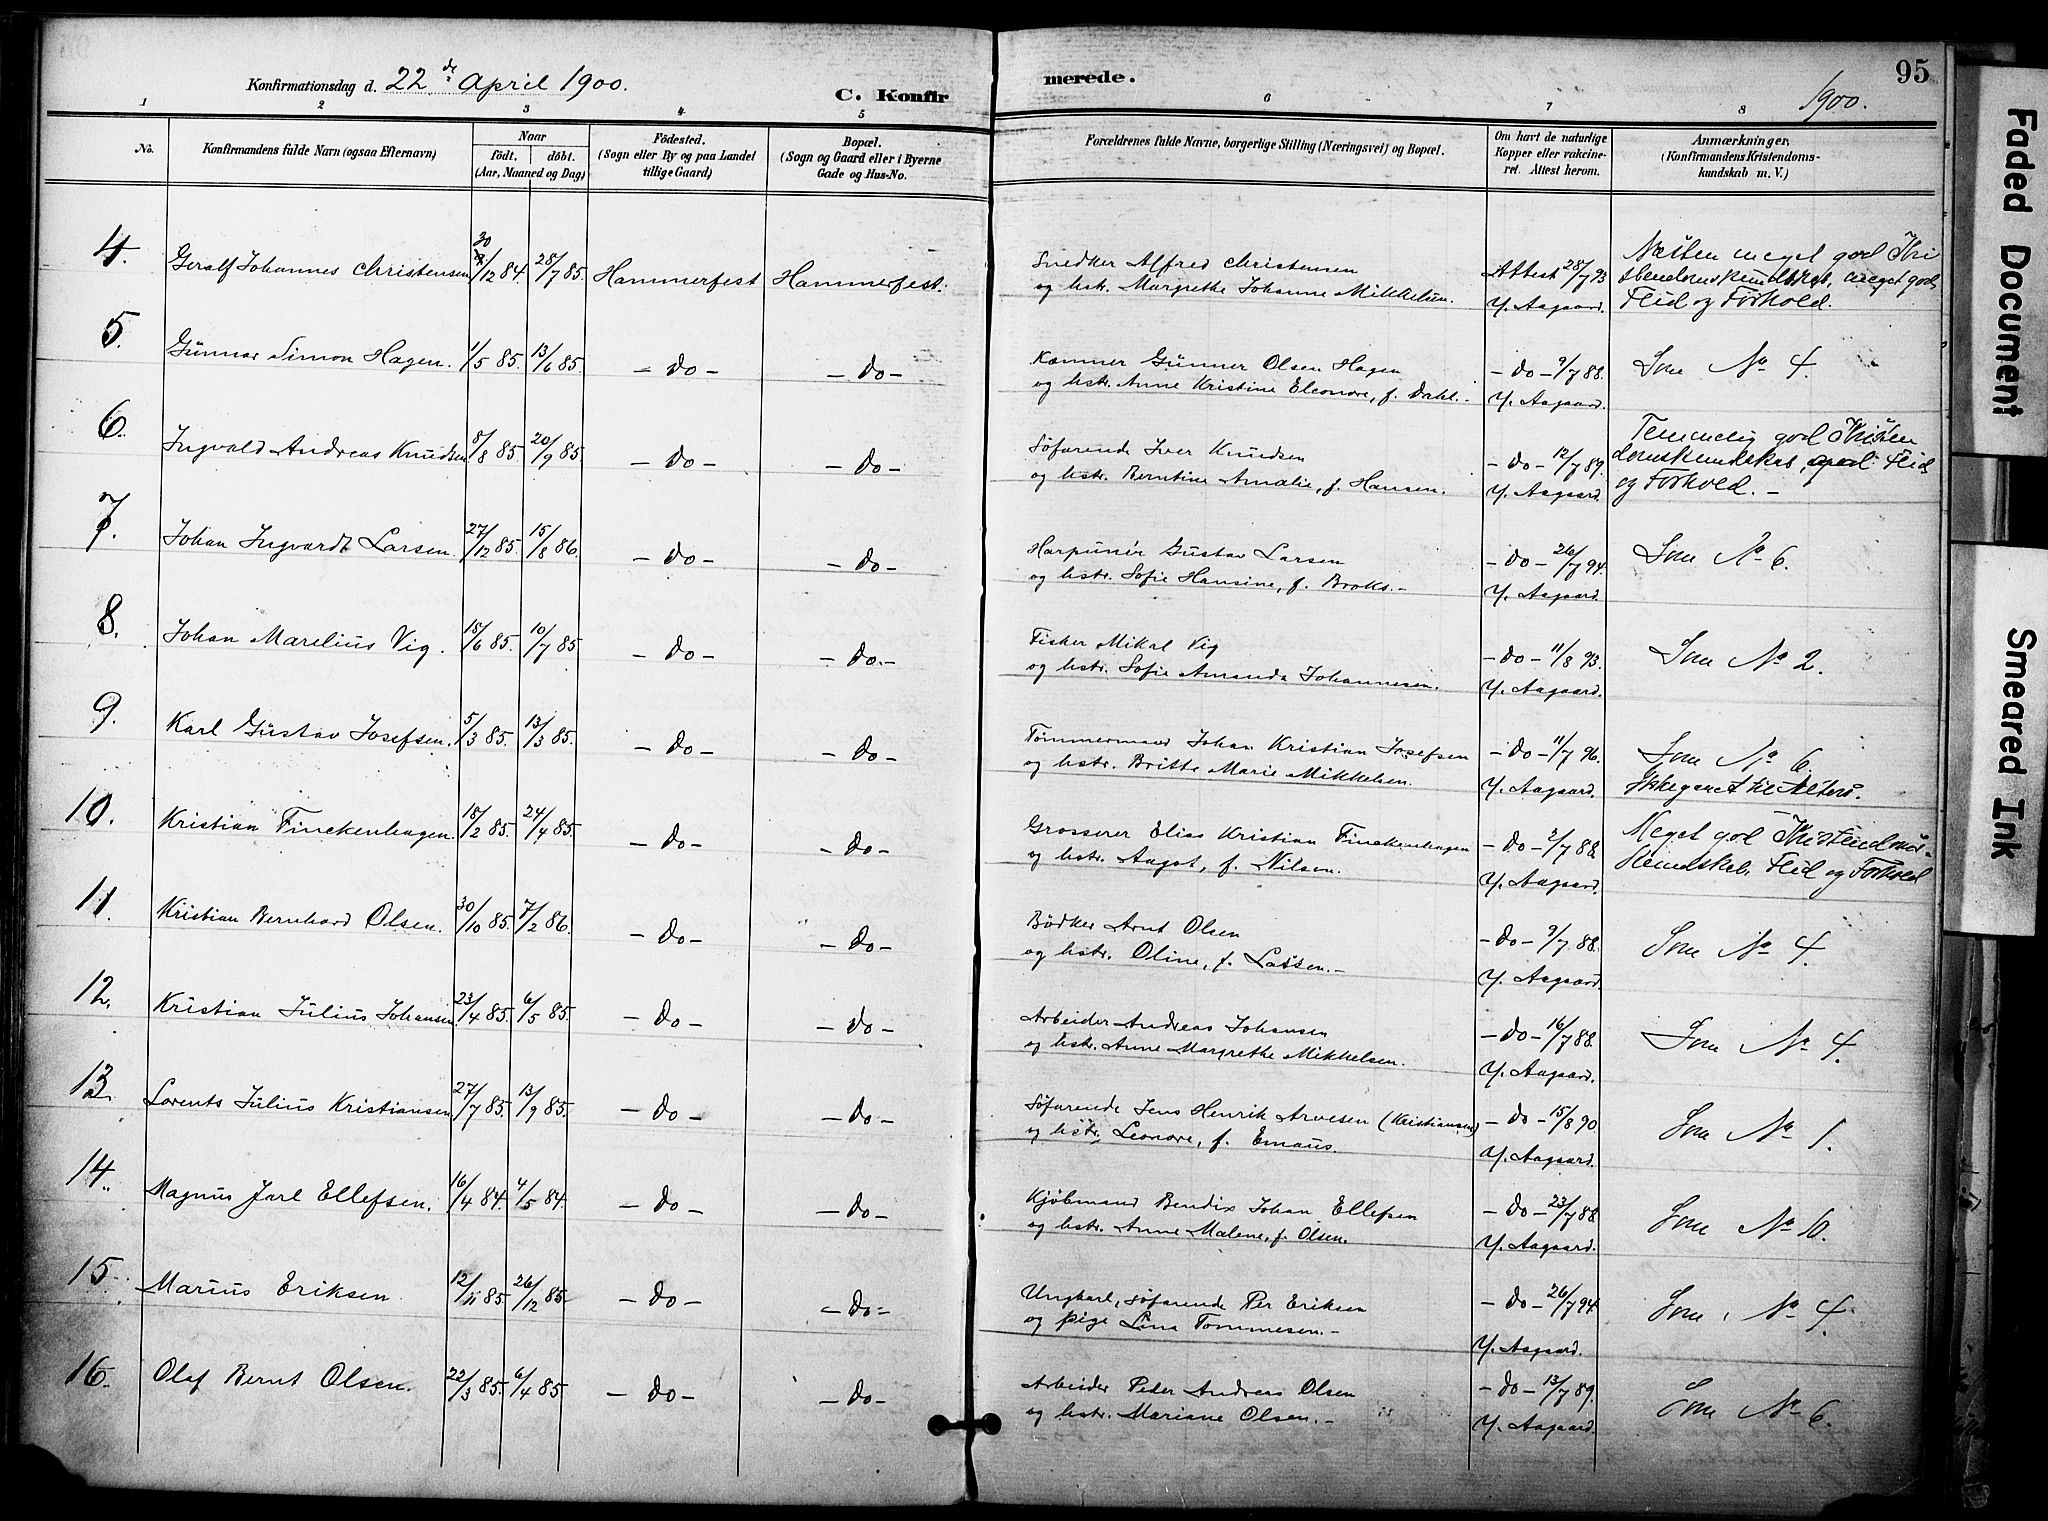 Konfirmationsdag d. 22de April 1900.
C. Konfirmerede.
95
1900.
1 2 3 4 5 6 7 8
No.
Konfirmandens fulde Navn (ogsaa Efternavn)
Naar
födt. döbt.
(Aar, Maaned og Dag)
Födested.
(Sogn eller By og paa Landet
tillige Gaard)
Bopæl.
(Sogn og Gaard eller i Byerne
Gade og Hus-No.
Forældrenes fulde Navne, borgerlige Stilling (Næringsvei) og Bopæl.
Om havt de naturlige
Kopper eller vakcine-
ret. Attest herom.
Anmærkninger,
(Konfirmandens Kristendoms-
kundskab m. V.)
4. Geralf Johannes Christensen 30/12 84. 28/7 85. Hammerfest Hammerfest.
Snedker Alfred Christensen
og hstr. Margrethe Johanne Mikkelsen.
Attest 28/7 93
Y. Aagaard.
Næsten meget god Khri
stendomskundskab, meget god
Flid og Forhold.
5. Gunnar Simon Hagen. 1/5 85. 13/6 85. - do - - do -
Kæmner Gunner Olsen Hagen
og hstr. Anne Kristine Eleonore, f. Dahl.
- do - 9/7 88.
Y. Aagaard.
Som No 4.
6. Ingvald Andreas Knudsen 8/8 85. 20/9 85. - do - - do -
Søfarende Iver Knudsen
og hstr. Berntine Amalie, f. Hansen.
- do - 12/7 89.
Y. Aagaard.
Temmelig god Khristen
domskundskab, god Flid
og Forhold. -
7. Johan Ingvardt Larsen. 27/12 85. 15/8 86. - do - - do -
Harpunér Gustav Larsen
og hstr. Sofie Hansine, f. Broks. -
- do - 26/7 94.
Y. Aagaard.
Som No 6.
8. Johan Marelius Vig. 18/6 85. 10/7 85 - do - - do. -
Fisker Mikal Vig
og hstr. Sofie Amanda Johannesen.
- do - 11/8 93.
Y. Aagaard.
Som No 2.
9. Karl Gustav Josefsen. 5/3 85. 13/3 85. - do - - do -
Tømmermand Johan Kristian Josefsen
og hstr. Britte Marie Mikkelsen.
- do - 11/7 96.
Y. Aagaard.
Som No 6.
Ikke gaaet til Alters.
10. Kristian Finckenhagen. 18/2 85. 24/4 85. - do - - do -
Grosserer Elias Kristian Finckenhagen
og hstr. Aagot, f. Nilsen.
- do - 2/7 88.
Y. Aagaard.
Meget god Khristendoms-
kundskab, Flid og Forhold
11. Kristian Bernhard Olsen. 30/10 85. 7/2 86. - do - - do -
Bødker Arnt Olsen
og hstr. Oline, f. Lassen. -
- do - 9/7 88.
Y. Aagaard.
Som No 4.
12. Kristian Julius Johansen. 23/4 85. 6/5 85. - do - - do -
Arbeider Andreas Johansen
og hstr. Anne Margrethe Mikkelsen.
- do - 16/7 88.
Y. Aagaard.
Som No 4.
13. Lorents Julius Kristiansen 27/7 85. 13/9 85. - do - - do -
Søfarende Jens Henrik Arvesen (Kristiansen)
og hstr. Leonore, f. Emaus.
- do - 15/8 90.
Y. Aagaard.
Som No 1.
14. Magnus Jarl Ellefsen. 16/4 84. 4/5 84. - do - - do -
Kjøbmand Bendix Johan Ellefsen
og hstr. Anne Malene, f. Olsen.
- do - 23/7 88.
Y. Aagaard.
Som No 10.
15. Marius Eriksen. 12/11 85. 26/12 85. - do - - do -
Ungkarl, søfarende Per Eriksen
og pige Lina Tommesen. -
- do - 26/7 94.
Y. Aagaard.
Som No 4.
16. Olaf Bernt Olsen. 22/3 85. 6/4 85. - do - - do -
Arbeider Peder Andreas Olsen
og hstr. Mariane Olsen. -
- do - 13/7 89.
Y. Aagaard.
Som No 6.
Faded Document
Smeared Ink